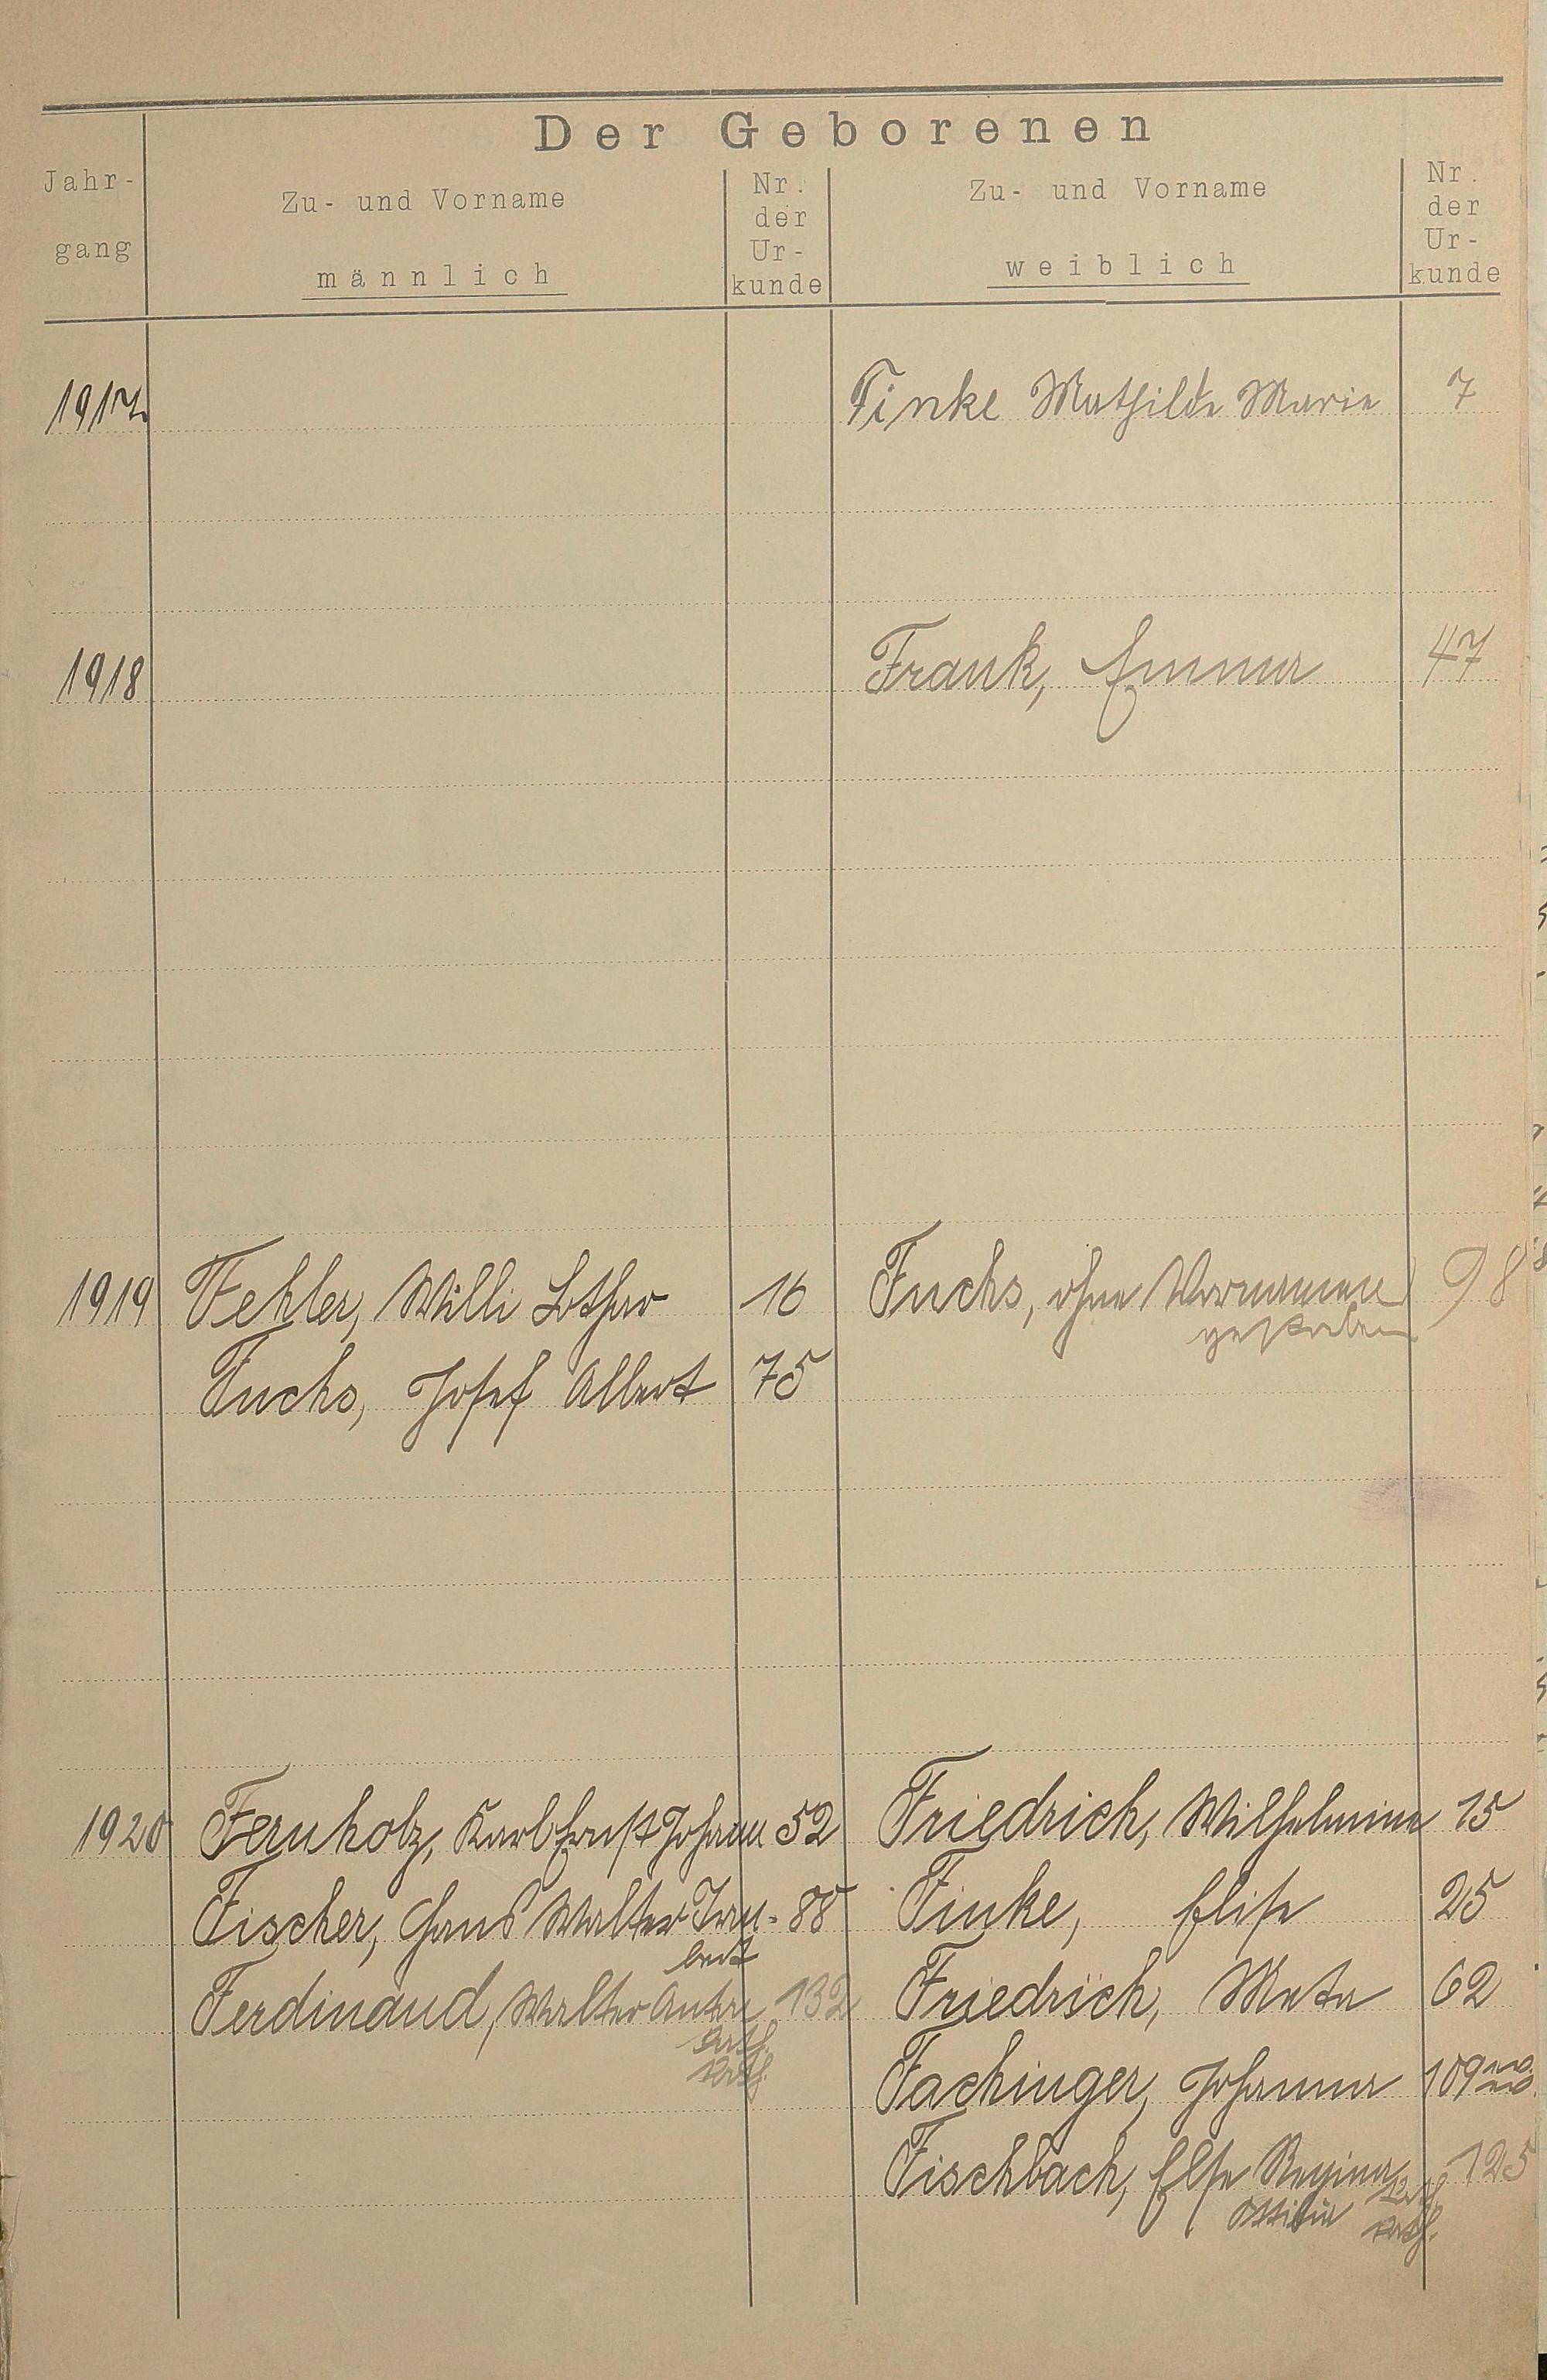 Der Geborenen
Jahr-
gang
Zu- und Vorname
männlich
Nr.
der
Ur-
kunde
Zu- und Vorname
weiblich
Nr.
der
Ur-
kunde
1917 Finke Mathilde Marie 7
1918 Frank, Emma 47
1919 Fehler, Willi Lothar 16 Fuchs, ohne Vornamen 98
gestorben
Fuchs, Josef Albert 75
1920 Fernholz, Karl Ernst Johann 52 Friedrich, Wilhelmine 15
Fischer, Hans Walter 88 Finke, Elise 25
Ferdinand, Walter Anton 132 Friedrich, Meta 62
Kath.
Kath.
Fachinger, Johanna 109
Fischbach, Else Regina 125
Ottilia Kath.
Kath.